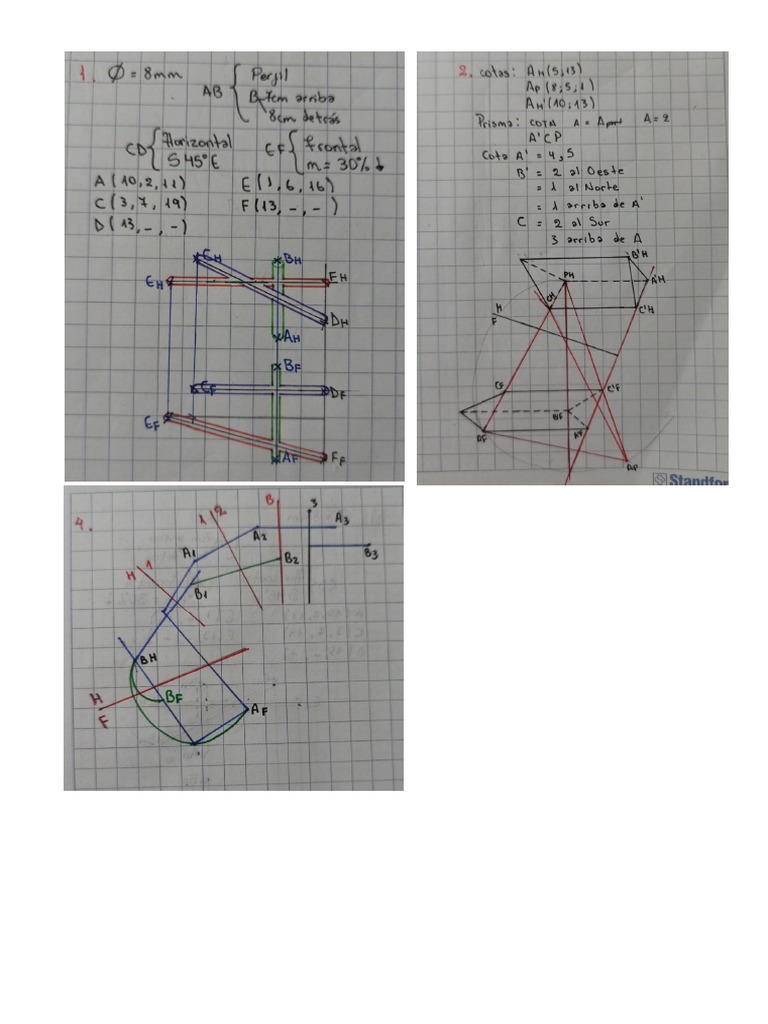 1. Ø = 8mm
AB { Perfil
B 7cm arriba
8cm detrás
CD { Horizontal
S 45° E
EF { frontal
m = 30% ↓
A (10, 2, 11)
E (1, 6, 16)
C (3, 7, 19)
F (13, -, -)
D (13, -, -)
CH
BH
EH
FH
DH
AH
BF
CF
DF
EF
AF
FF
2. cotas: AH (5, 13)
AP (8, 5, 1)
AH' (10, 13)
Prisma: COTA A = A A = 2
A' C P
Cota A' = 4, 5
B' = 2 al Oeste
= 1 al Norte
= 1 arriba de A'
C = 2 al Sur
3 arriba de A
B'H
PH
A'H
CH
C'H
H
F
CF
C'F
B'F
AF
A'F
AP
Standfor
4.
B
3
1 2
A3
A2
H 1
A1
B2
B3
B1
BH
H
F
BF
AF